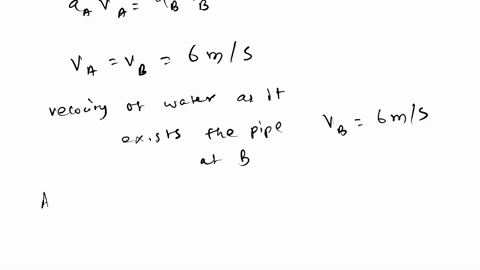 a_A V_A = a_B V_B
V_A = V_B = 6 m/s
velocity of water as it
exists the pipe
at B
V_B = 6 m/s
A